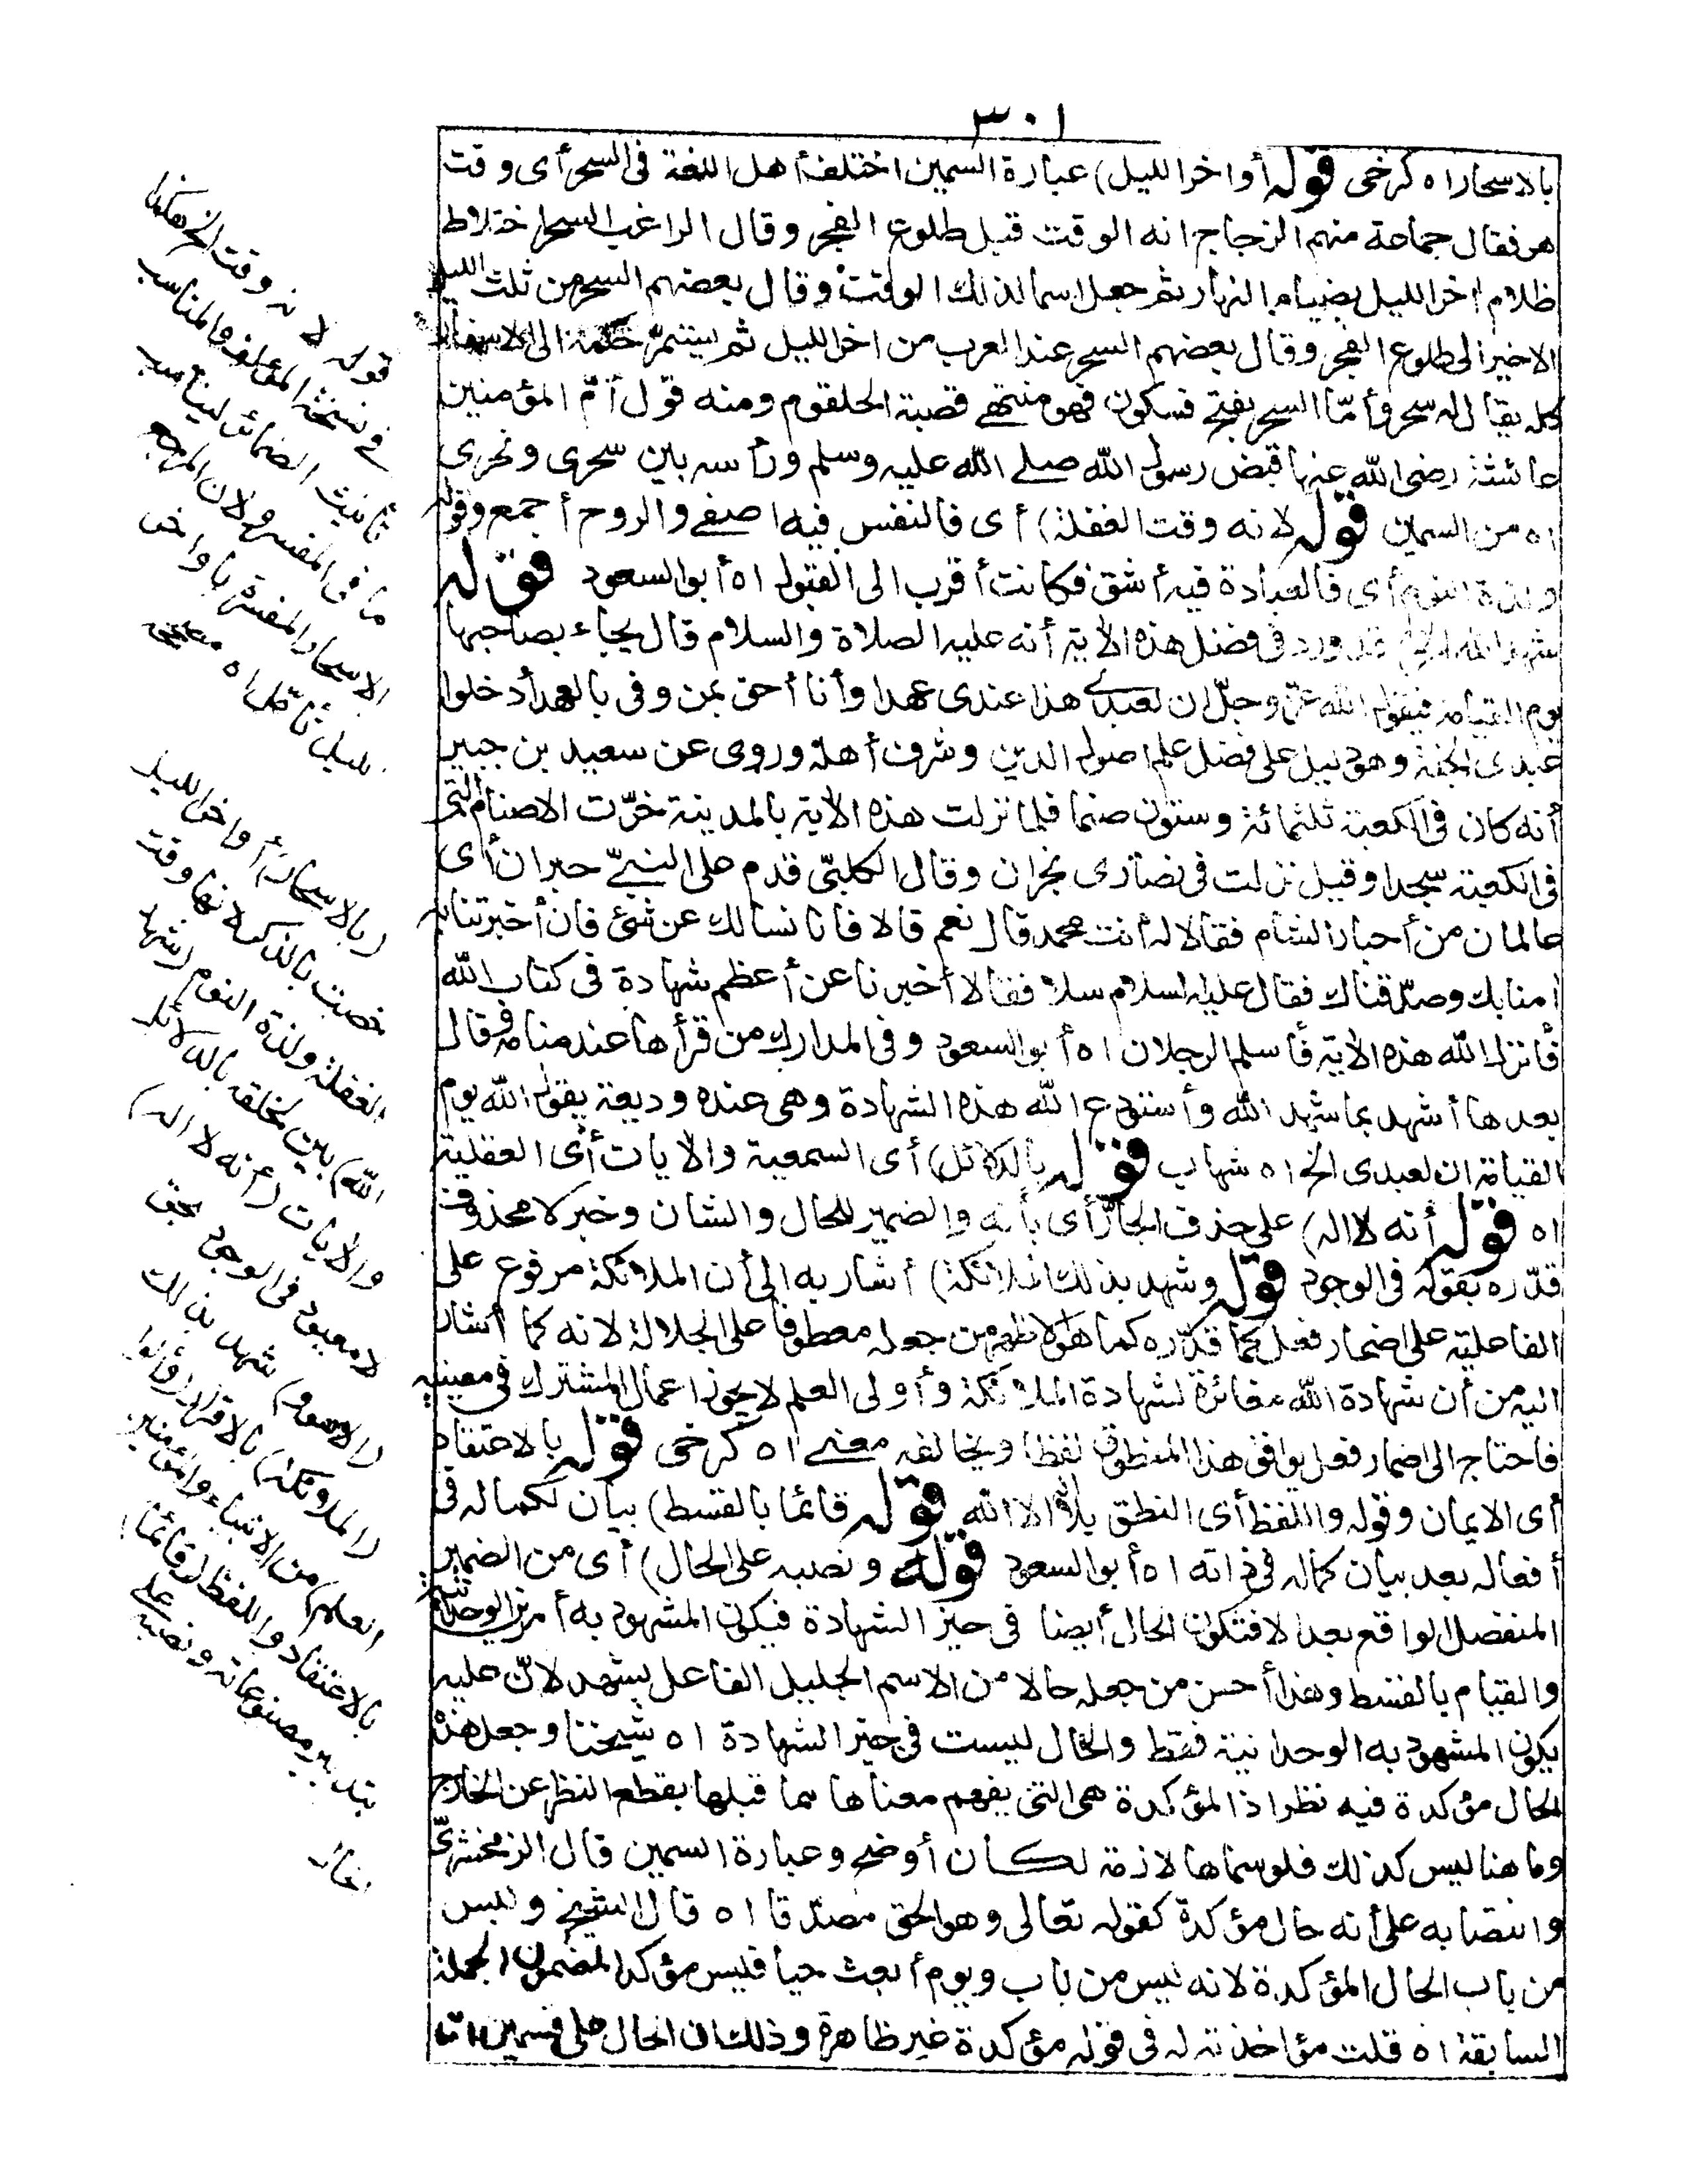 ٣٠١
بالاسحار اه كرخى قوله أواخر الليل) عبارة السمين اختلف أهل اللغة فى السحر أى وقت
هو فقال جماعة منهم الزجاج انه الوقت قبل طلوع الفجر وقال الراغب السحر اختلاط
ظلام اخر الليل بضياء النهار ثم جعل اسما لذلك الوقت وقال بعضهم السحر من ثلث الليل
الاخير الى طلوع الفجر وقال بعضهم السحر عند العرب من اخر الليل ثم يستمر حكمه الى الاسفار
كله يقال له سحر وأمّا السحر بفتح فسكون فهو منتهى قصبة الحلقوم ومنه قول أمّ المؤمنين
عائشة رضى الله عنها قبض رسول الله صلى الله عليه وسلم ورأسه بين سحرى ونحرى
اه من السمين قوله لانه وقت الغفلة) أى فالنفس فيه اصفى والروح أجمع وقوله
ولذة النوم أى فالعبادة فيه أشق فكانت أقرب الى القبول اه أبو السعود قوله
شهد الله الخ قد ورد فى فضل هذه الآية أنه عليه الصلاة والسلام قال يجاء بصاحبها
يوم القيامة فيقول الله عزّ وجلّ ان لعبدى هذا عندى عهدا وأنا أحق بمن وفى بالعهد أدخلوا
عبدى الجنة وهو دليل على فضل علم اصول الدين وشرف أهله وروى عن سعيد بن جبير
أنه كان فى الكعبة ثلثمائة وستون صنما فلما نزلت هذه الآية بالمدينة خرّت الاصنام التى
فى الكعبة سجدا وقيل نزلت فى نصارى نجران وقال الكلبىّ قدم على النبىّ حبران أى
عالمان من أحبار الشام فقالا له أنت محمد قال نعم قالا فانا نسالك عن شئ فان أخبرتنا به
امنا بك وصدّقناك فقال عليه السلام سلا فقالا أخبرنا عن أعظم شهادة فى كتاب الله
فأنزل الله هذه الآية فأسلم الرجلان اه أبو السعود وفى المدارك من قرأها عند منامه فقال
بعدها أشهد بما شهد الله وأستودع الله هذه الشهادة وهى عنده وديعة يقول الله يوم
القيامة ان لعبدى الخ اه شهاب قوله بالدلائل) أى السمعية والآيات أى العقلية
اه قوله أنه لا اله) على حذف الجارّ أى بأنه والضمير للحال والشان وخبر لا محذوف
قدّره بقوله فى الوجود قوله وشهد بذلك الملائكة) أشار به الى أن الملائكة مرفوع على
الفاعلية على اضمار فعل كما قدّره كما هو الاظهر من جعله معطوفا على الجلالة لانه كما أشار
اليه من أن شهادة الله مغائرة لشهادة الملائكة وأولى العلم لا يجوز اعمال المشترك فى معنييه
فاحتاج الى اضمار فعل يوافق هذا المنطوق لفظا ويخالفه معنى اه كرخى قوله بالاعتقاد
أى الايمان وقوله واللفظ أى النطق بلا اله الا الله قوله قائما بالقسط) بيان لكماله فى
أفعاله بعد بيان كماله فى ذاته اه أبو السعود قوله ونصبه على الحال) أى من الضمير
المنفصل الواقع بعد الا فتكون الحال أيضا فى حيز الشهادة فيكون المشهود به أمرين الوحدانية
والقيام بالقسط وهذا أحسن من جعله حالا من الاسم الجليل الفاعل بشهد لانّ عليه
يكون المشهود به الوحدانية فقط والحال ليست فى حيز الشهادة اه شيخنا وجعل هذه
الحال مؤكدة فيه نظر اذ المؤكدة هى التى يفهم معناها مما قبلها بقطع النظر عن الخارج
وما هنا ليس كذلك فلو سماها لازمة لكان أوضح وعبارة السمين قال الزمخشرىّ
وانتصابه على أنه حال مؤكدة كقوله تعالى وهو الحق مصدّقا اه قال الشيخ وليس
من باب الحال المؤكدة لانه ليس من باب ويوم أبعث حيا فليس مؤكدا لمضمون الجملة
السابقة اه قلت مؤاخذته له فى قوله مؤكدة غير ظاهرة وذلك ان الحال على قسمين اما
قوله لانه وقت الخ هكذا
فى نسخة المؤلف والمناسب
تأنيث الضمائر ليناسب
ما فى المفسر ولان المرجع
الاسحار المفسر بأواخر
الليل تأمّل اه
(بالاسحار) أواخر الليل
خصت بالذكر لانها وقت
الغفلة ولذة النوم (شهد
الله) بين لخلقه بالدلائل
والآيات (أنه لا اله)
لا معبود فى الوجود بحق
(الا هو و) شهد بذلك
(الملائكة) بالاقرار (وأولوا
العلم) من الانبياء والمؤمنين
بالاعتقاد واللفظ (قائما)
بتدبير مصنوعاته ونصبه على
الحال